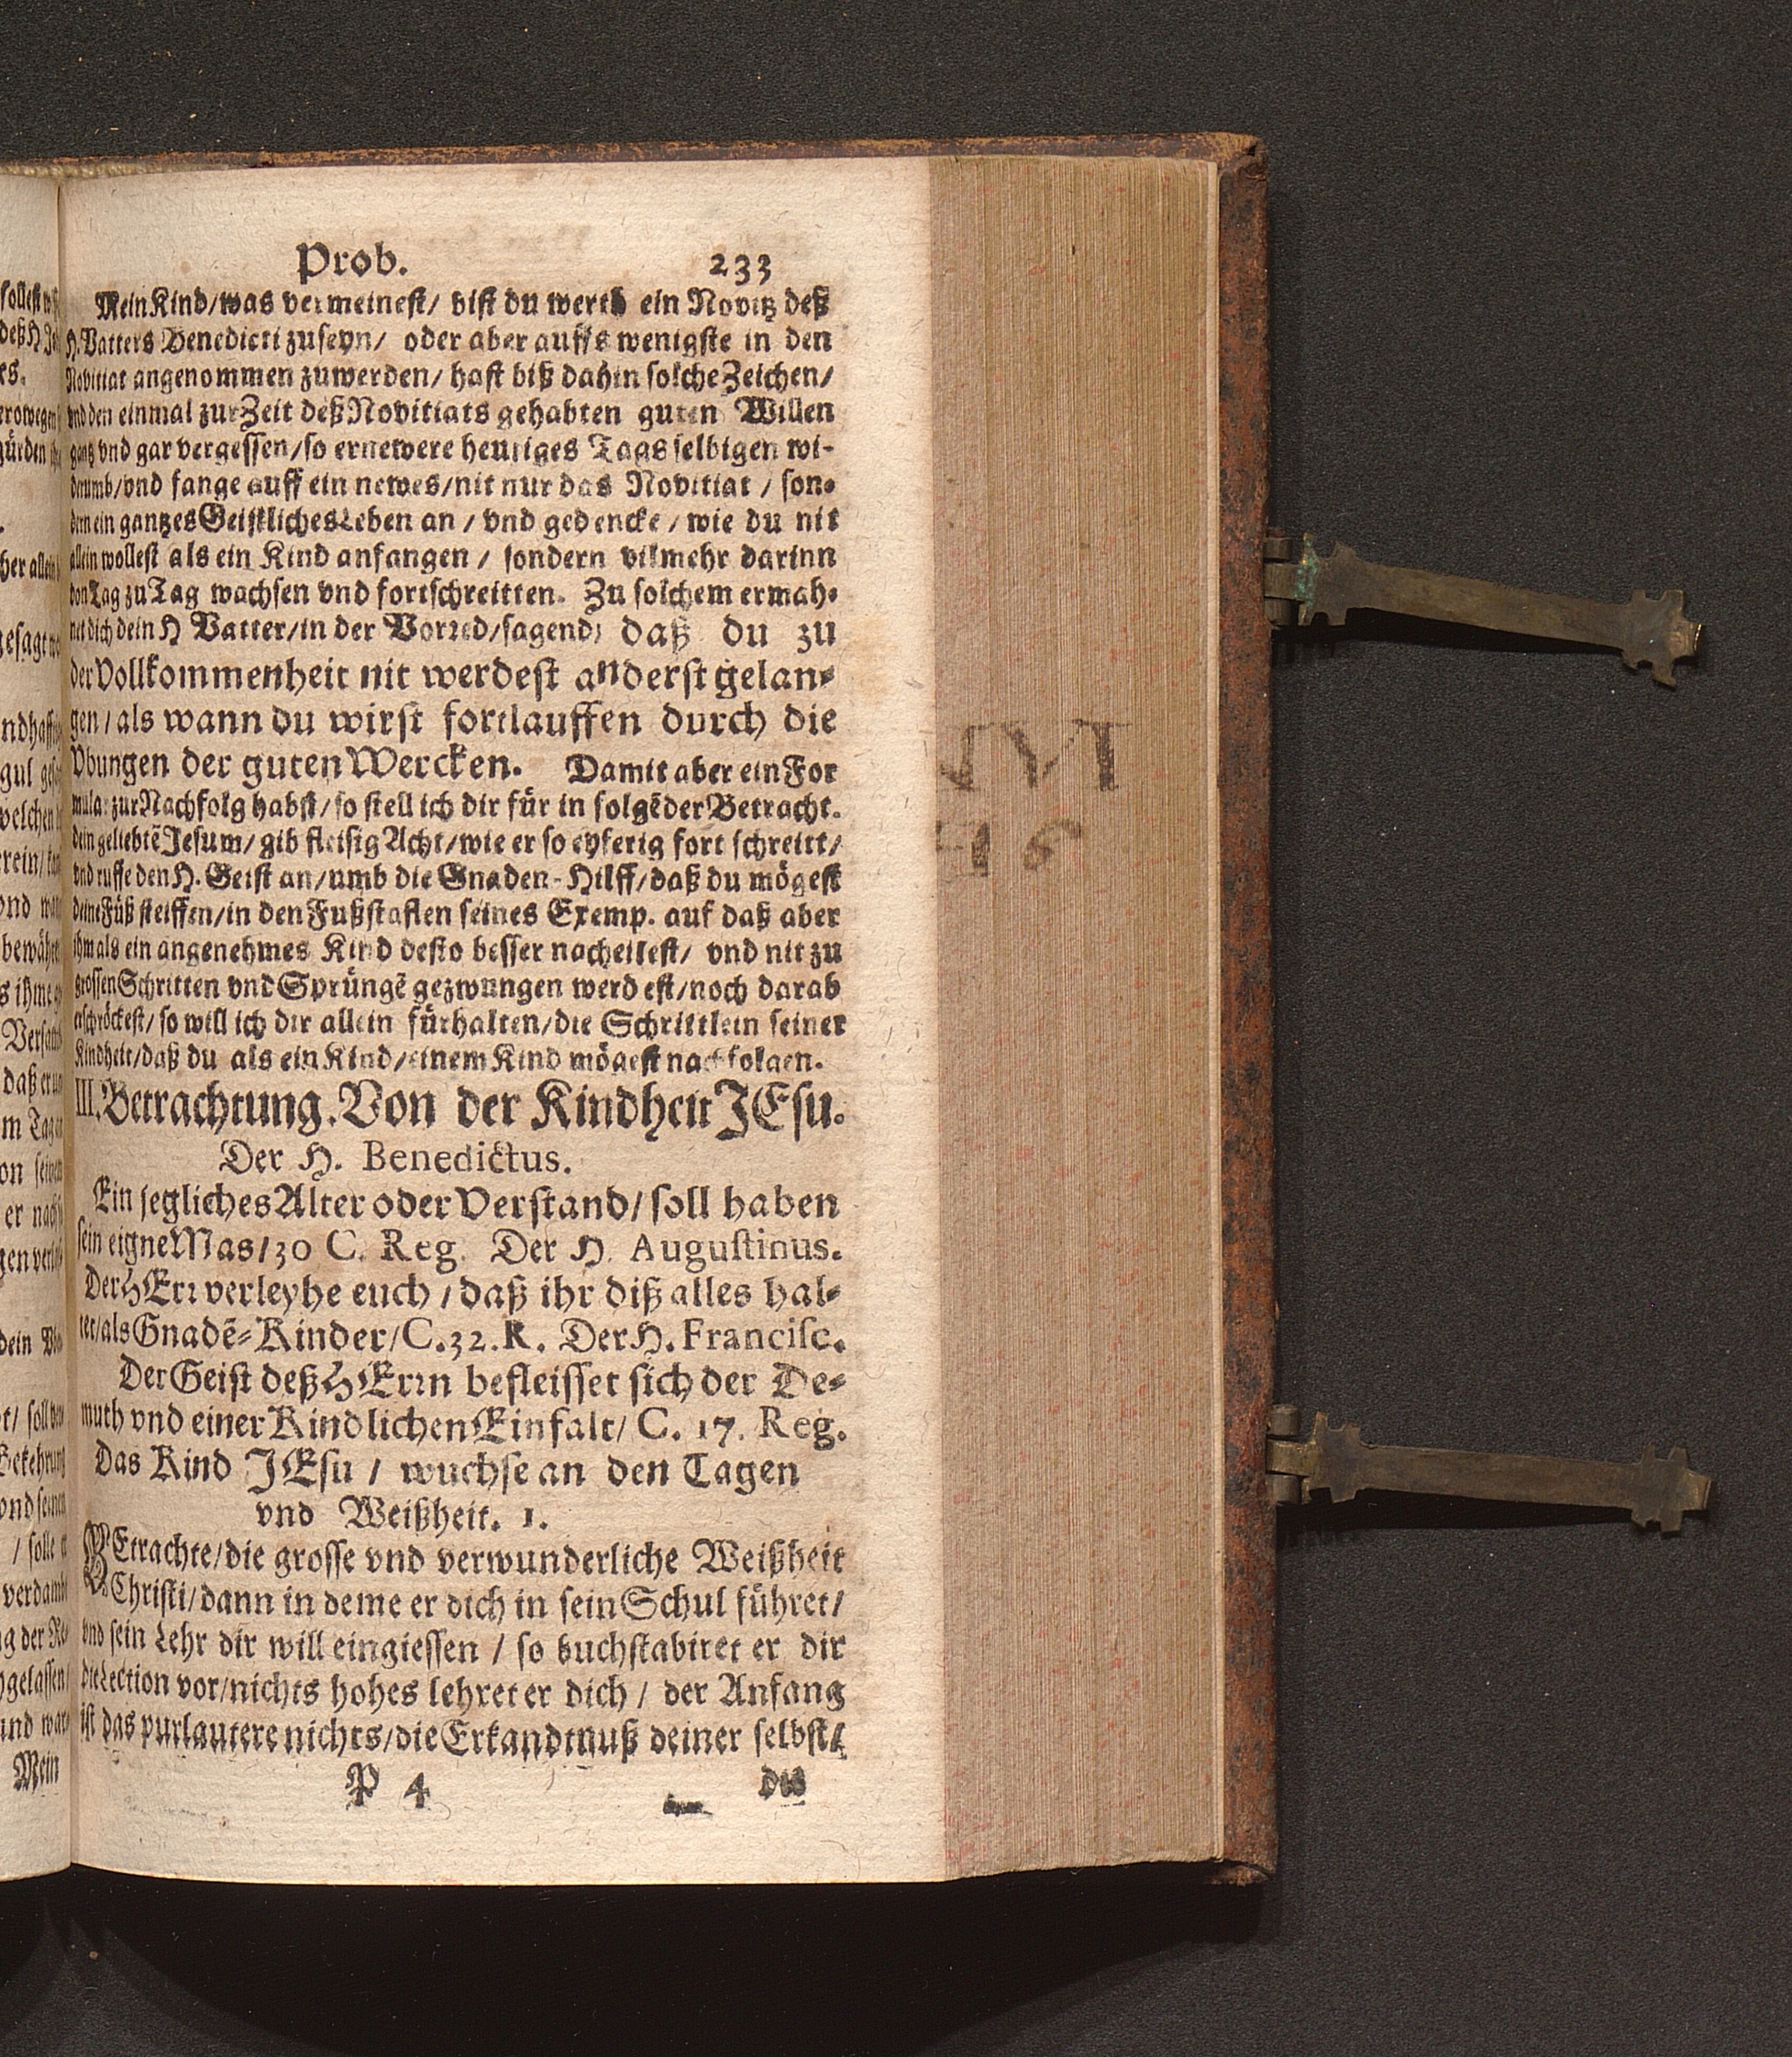 Prob. 233
Mein Kind/was vermeinest/ bist du werth ein Novitz deß
H. Vatters Benedicti zuseyn/ oder aber auffs wenigste in den
Novitiat angenommen zuwerden/ hast biß dahin solche Zeichen/
vnd den einmal zur Zeit deß Novitiats gehabten guten Willen
gantz vnd gar vergessen/so ernewere heutiges Tags selbigen wi-
derumb/vnd fange auff ein newes/nit nur das Novitiat / son-
dern ein gantzes Geistliches Leben an / vnd gedencke / wie du nit
allein wollest als ein Kind anfangen / sondern vilmehr darinn
von Tag zu Tag wachsen vnd fortschreitten. Zu solchem ermah-
net dich dein H Vatter/in der Vorred/sagend/ daß du zu
der Vollkommenheit nit werdest anderst gelan-
gen/als wann du wirst fortlauffen durch die
Vbungen der guten Wercken. Damit aber ein For
mular zur Nachfolg habst/so stell ich dir für in folgēder Betracht.
dein geliebtē Jesum/gib fleisig Acht/wie er so eyferig fort schreitt/
vnd ruffe den H. Geist an/umb die Gnaden-Hilff/daß du mögest
deine Füß steiffen/in den Fußstaffen seines Exemp. auf daß aber
ihm als ein angenehmes Kind desto besser nacheilest/ vnd nit zu
grossen Schritten vnd Sprüngē gezwungen werdest/noch darab
erschröckest/so will ich dir allein fürhalten/die Schrittlein seiner
Kindheit/daß du als ein Kind/einem Kind mögest nachfolgen.
III. Betrachtung. Von der Kindheit JEsu.
Der H. Benedictus.
Ein jegliches Alter oder Verstand/soll haben
sein eigne Mas/30 C. Reg. Der H. Augustinus.
Der HErr verleyhe euch/daß ihr diß alles hal-
tet/als Gnadē-Kinder/C.32.R. Der H. Francisc.
Der Geist deß HErrn befleisset sich der De-
muth vnd einer Kindlichen Einfalt/ C. 17. Reg.
Das Kind JEsu / wuchse an den Tagen
vnd Weißheit. 1.
BEtrachte/die grosse vnd verwunderliche Weißheit
Christi/dann in deme er dich in sein Schul führet/
vnd sein Lehr dir will eingiessen / so buchstabiret er dir
die Lection vor/nichts hohes lehret er dich / der Anfang
ist das purlautere nichts/die Erkandtnuß deiner selbst/
P 4 die